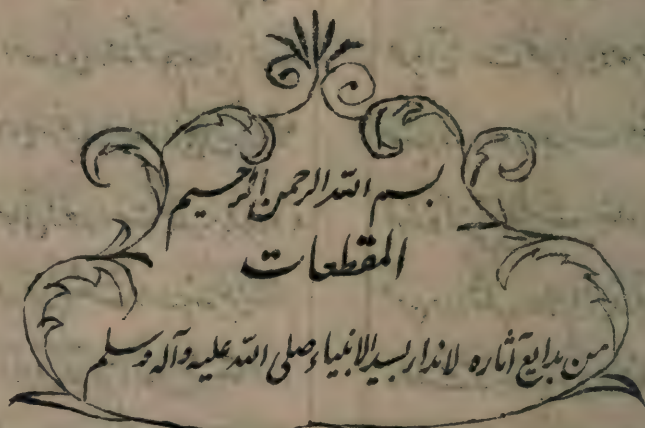 بسم الله الرحمن الرحیم
المقطعات
من بدایع آثاره لاندار لسید الانبیاء صلی الله علیه وآله وسلم